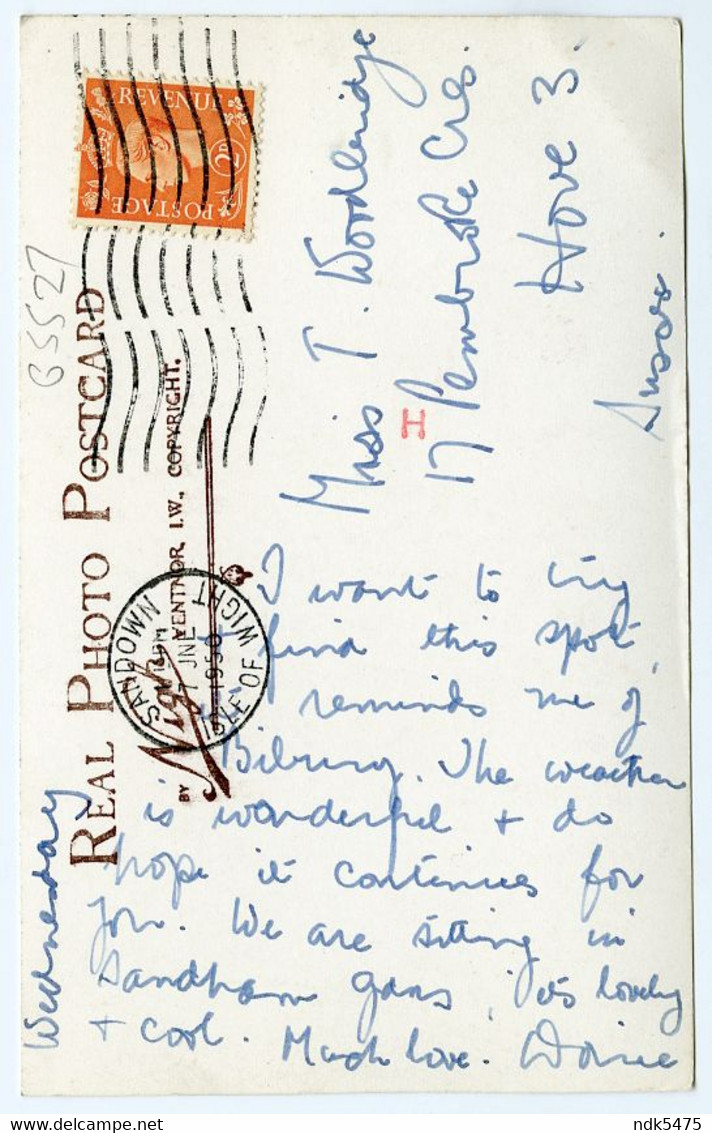 REVENUE
POSTAGE
2D
65527
REAL PHOTO POSTCARD
BY Nigh, VENTNOR, I.W., COPYRIGHT.
SANDOWN
7 JNE
1950
ISLE OF WIGHT
Miss T. Woodbridge
17 Pembroke Cres.
Hove 3.
Sussex
H
Wednesday
I want to try
+ find this spot,
it reminds me of
Bibury. The weather
is wonderful + do
hope it continues for
you. We are sitting in
Sandham gdns, its lovely
+ cool. Much love.
delcampe.net
ndk5475